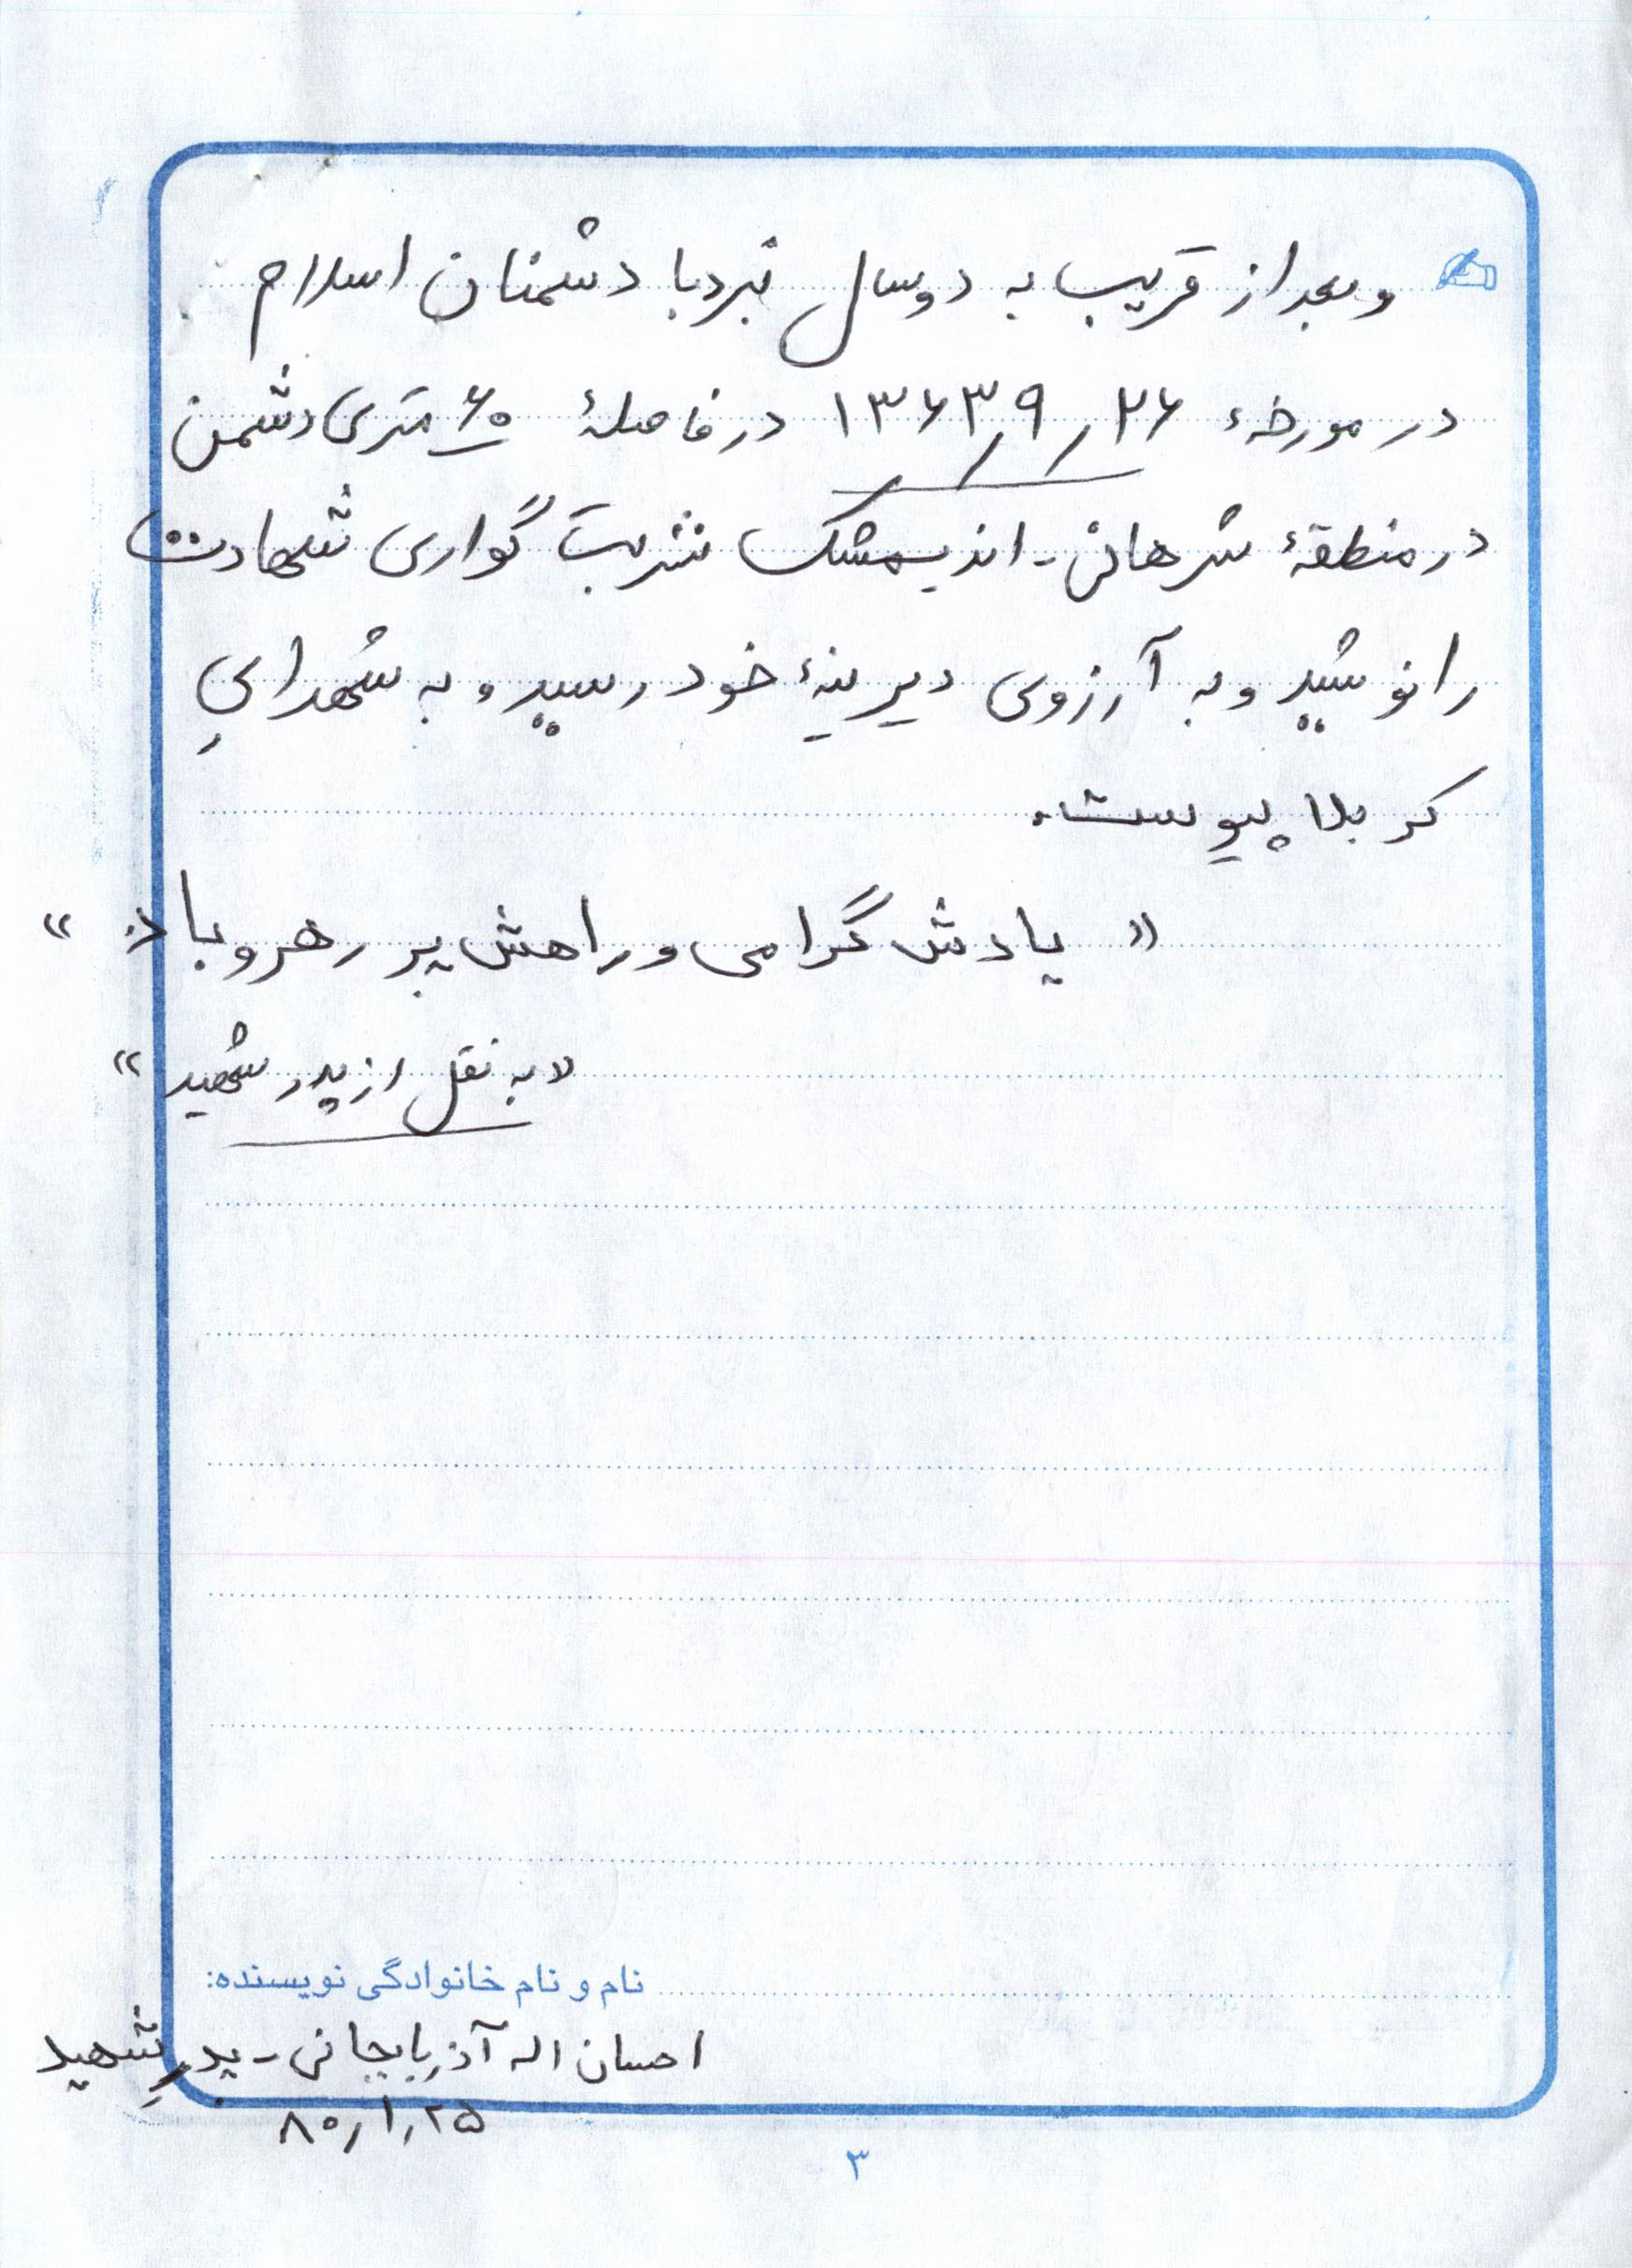 و بعد از قریب به دو سال نبرد با دشمنان اسلام
در مورخهٔ ۱۳۶۳/۹/۲۶ در فاصلهٔ ۶۰ متری دشمن
در منطقهٔ شرهانی - اندیمشک شربت گوارای شهادت
را نوشید و به آرزوی دیرینهٔ خود رسید و به شهدایِ
کربلا پیوست.
« یادش گرامی و راهش پر رهرو باد »
« به نقل از پدر شهید »
نام و نام خانوادگی نویسنده:
احسان اله آذربایجانی - پدرِ شهید
۸۰/۱/۲۵
۳